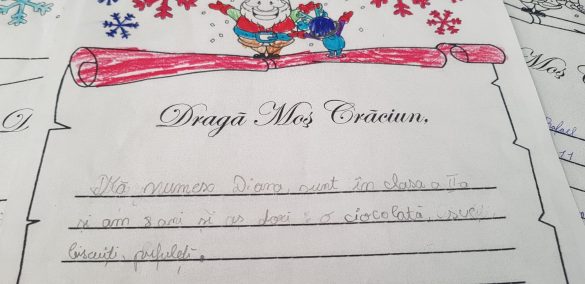 Dragă Moș Crăciun,
Mă numesc Diana, sunt în clasa a II a
și am 8 ani și aș dori : o ciocolată, suc,
biscuiți, pufuleți.